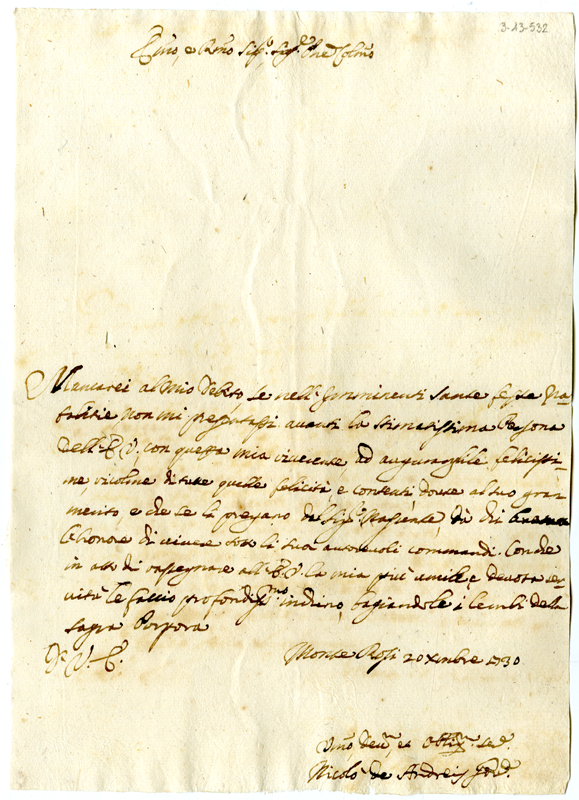 3-13-532
Em̃o, e Rm̃o Sig.r Sig.r Pñe Colm̃o
Mancarei al mio debito se nell'Imminenti Sante feste Na=
talitie non mi presentassi avanti la Stimatissima Persona
dell'E.V. con questa mia riverente ad augurargliele felicissi=
me, ricolme di tutte quelle felicità, e contenti, dovute al suo gran
merito, e che se li pregano dal Sig.re Nascente, da chi
l'honore di vivere sotto li suoi autorevoli commandi. Con che
in atto di rassegnare all'E.V. la mia più umile e devota ser=
vitù le faccio profondiss.mo inchino, bagiandole i lembi della
Sagra Porpora
D. V. E.
Monte Rosi 20 Xmbre 1730
Um̃o Dev.mo et Obblig.mo Ser.
Nicolò de Andreis Gov.